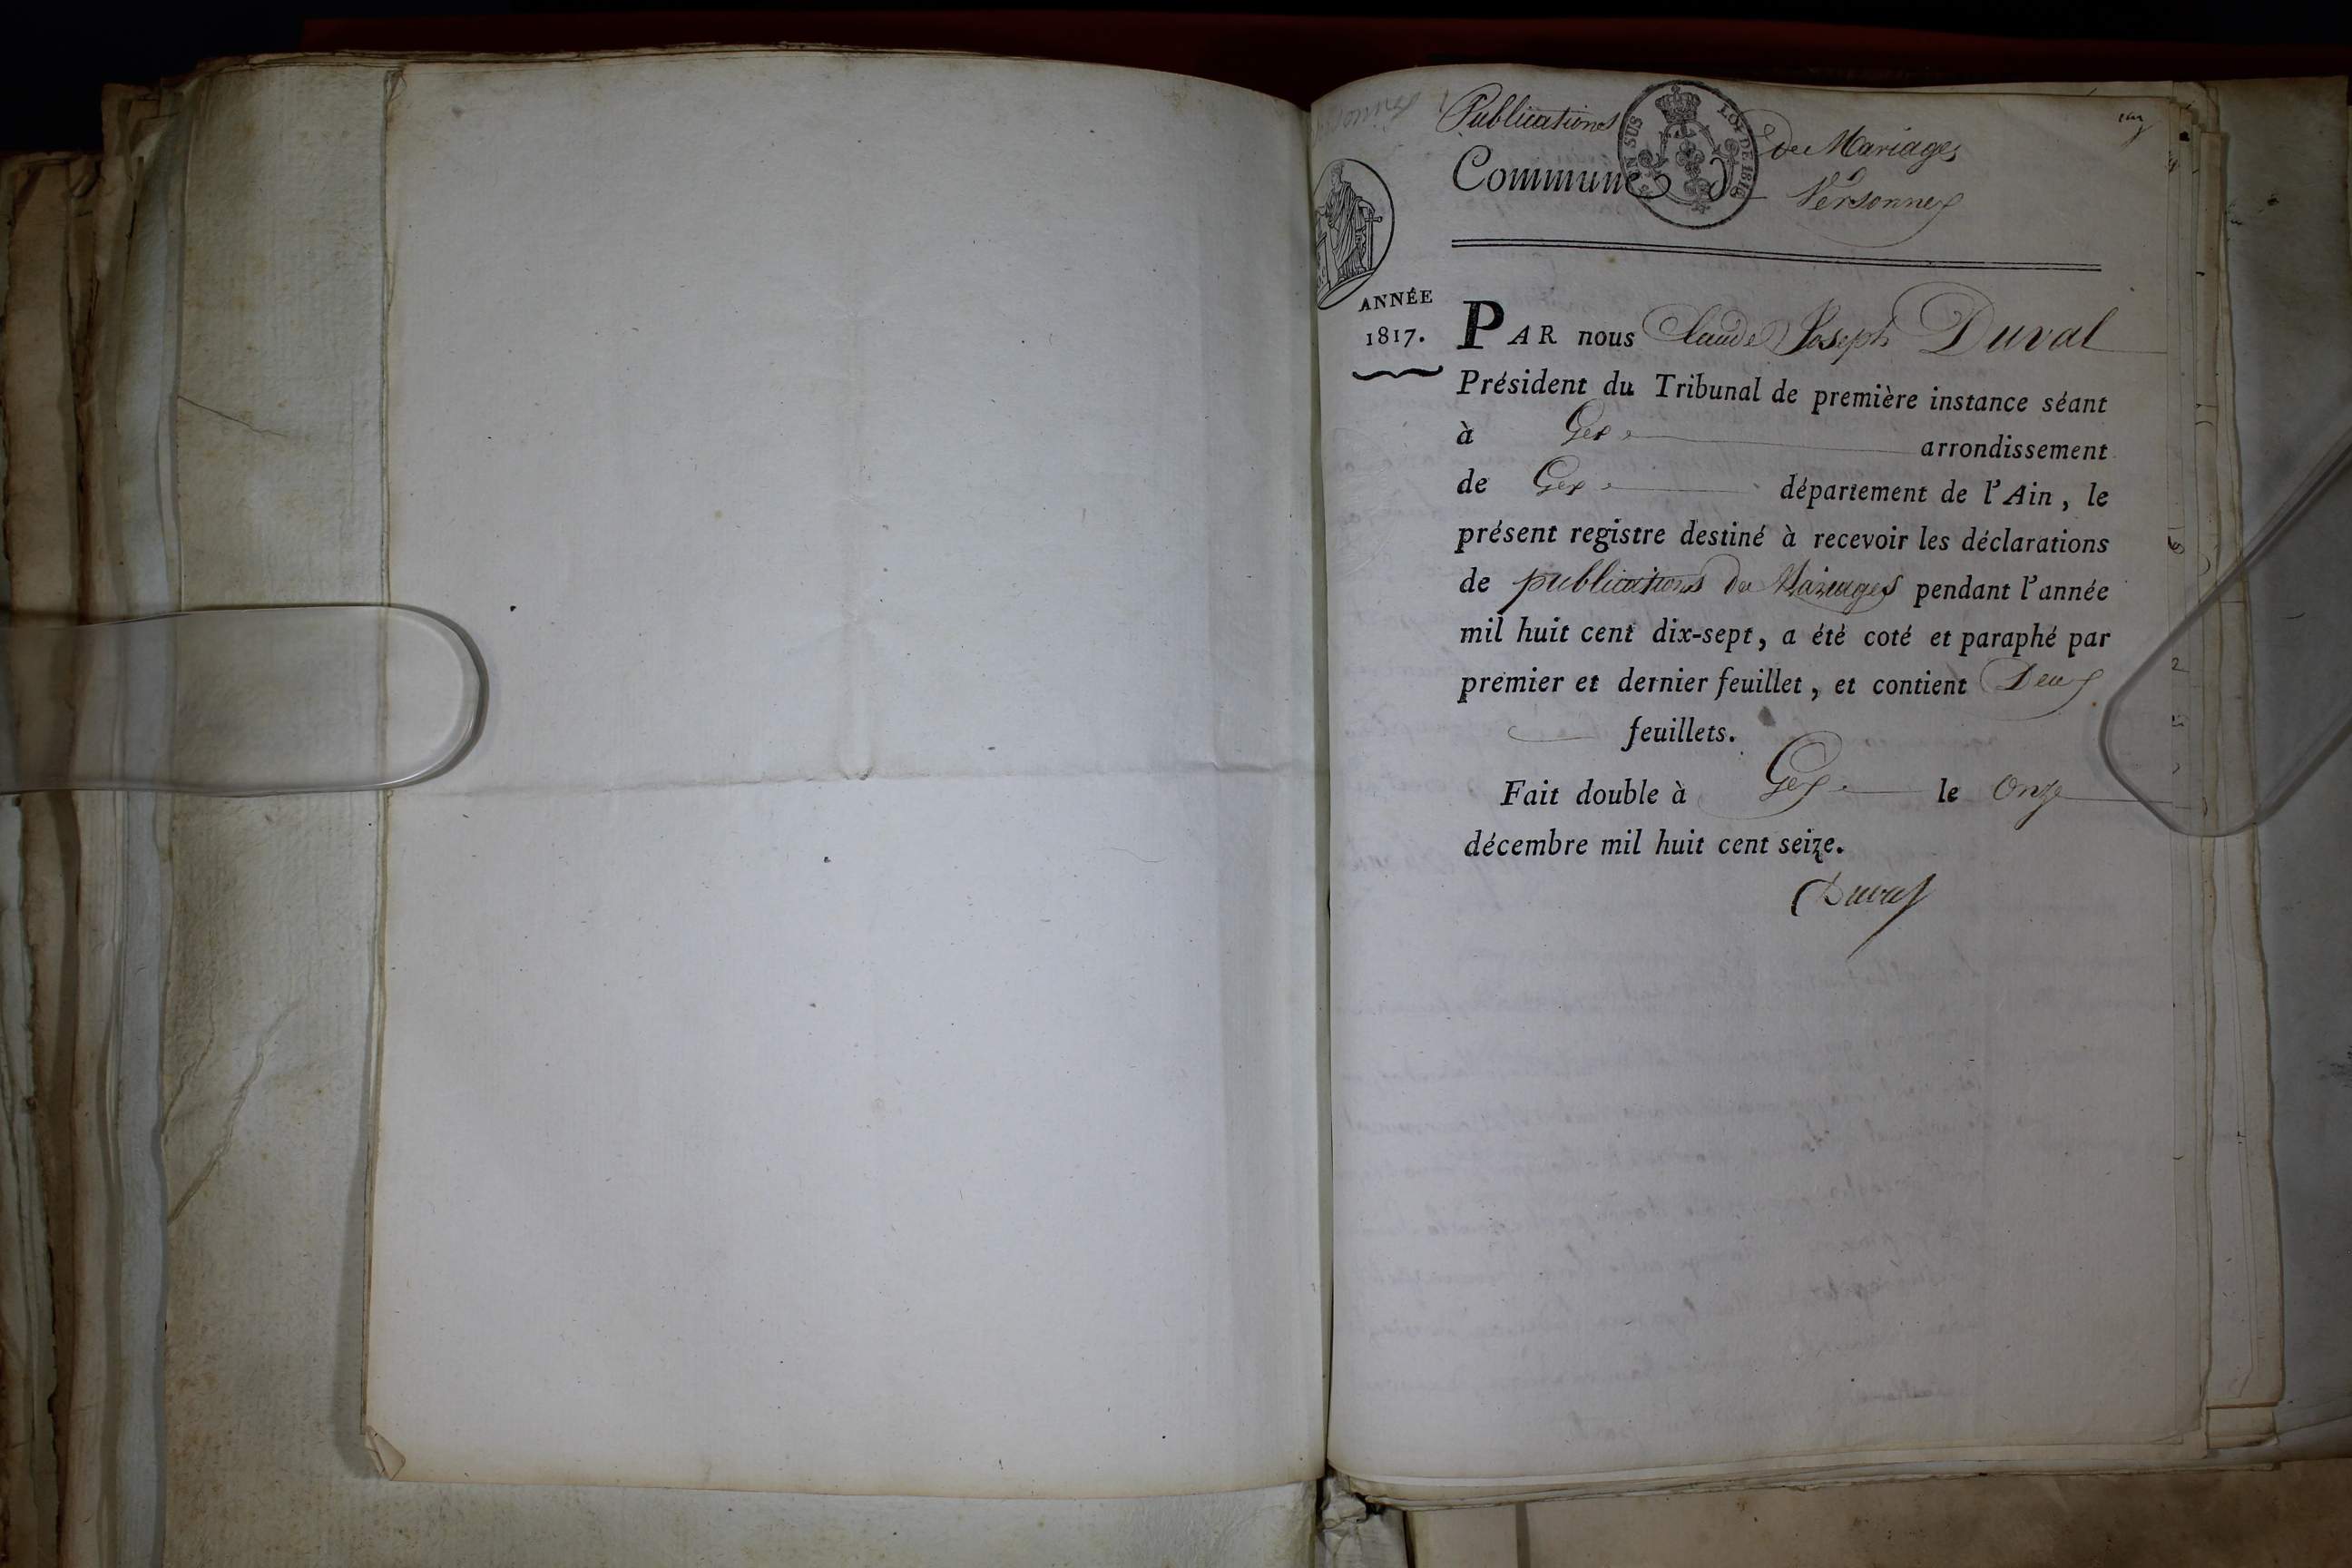 Publications de Mariages
EN SUS LOI DE 1816
Commune d Versonnex
ANNÉE
1817.
PAR nous Claude Joseph Duval
Président du Tribunal de première instance séant
à Gex arrondissement
de Gex département de l'Ain, le
présent registre destiné à recevoir les déclarations
de publications de Mariages pendant l'année
mil huit cent dix-sept, a été coté et paraphé par
premier et dernier feuillet, et contient Deux
feuillets.
Fait double à Gex le Onze
décembre mil huit cent seize.
Duval